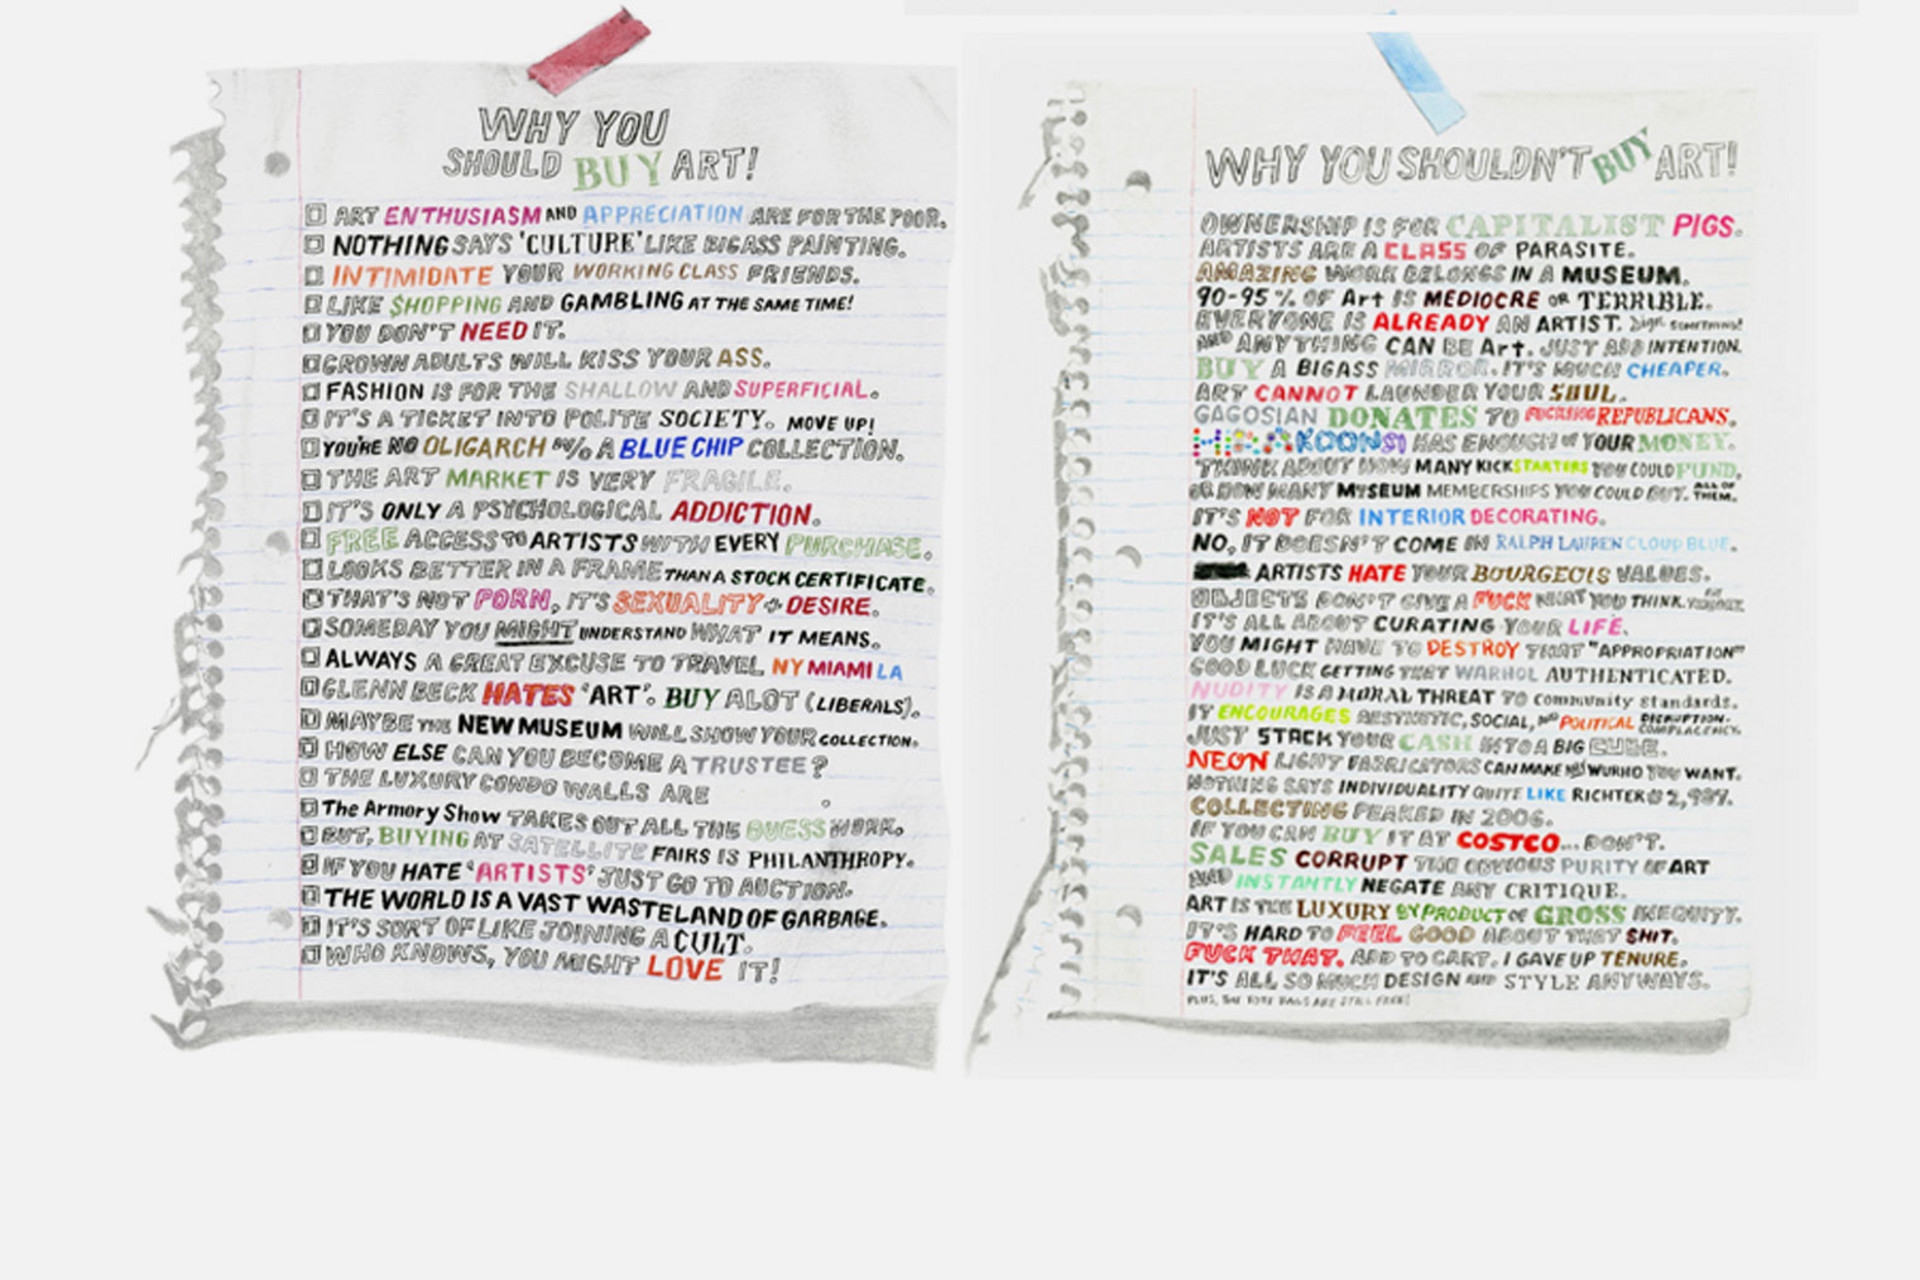 WHY YOU
SHOULD BUY ART!
ART ENTHUSIASM AND APPRECIATION ARE FOR THE POOR.
NOTHING SAYS 'CULTURE' LIKE BIGASS PAINTING.
INTIMIDATE YOUR WORKING CLASS FRIENDS.
LIKE $HOPPING AND GAMBLING AT THE SAME TIME!
YOU DON'T NEED IT.
GROWN ADULTS WILL KISS YOUR ASS.
FASHION IS FOR THE SHALLOW AND SUPERFICIAL.
IT'S A TICKET INTO POLITE SOCIETY. MOVE UP!
YOU'RE NO OLIGARCH W/O A BLUE CHIP COLLECTION.
THE ART MARKET IS VERY FRAGILE.
IT'S ONLY A PSYCHOLOGICAL ADDICTION.
FREE ACCESS TO ARTISTS WITH EVERY PURCHASE.
LOOKS BETTER IN A FRAME THAN A STOCK CERTIFICATE.
THAT'S NOT PORN, IT'S SEXUALITY + DESIRE.
SOMEDAY YOU MIGHT UNDERSTAND WHAT IT MEANS.
ALWAYS A GREAT EXCUSE TO TRAVEL NY MIAMI LA
GLENN BECK HATES 'ART'. BUY ALOT (LIBERALS).
MAYBE THE NEW MUSEUM WILL SHOW YOUR COLLECTION.
HOW ELSE CAN YOU BECOME A TRUSTEE?
THE LUXURY CONDO WALLS ARE .
The Armory Show TAKES OUT ALL THE GUESS WORK.
BUT, BUYING AT SATELLITE FAIRS IS PHILANTHROPY.
IF YOU HATE 'ARTISTS' JUST GO TO AUCTION.
THE WORLD IS A VAST WASTELAND OF GARBAGE.
IT'S SORT OF LIKE JOINING A CULT.
WHO KNOWS, YOU MIGHT LOVE IT!
WHY YOU SHOULDN'T BUY ART!
OWNERSHIP IS FOR CAPITALIST PIGS.
ARTISTS ARE A CLASS OF PARASITE.
AMAZING WORK BELONGS IN A MUSEUM.
90-95% OF Art IS MEDIOCRE OR TERRIBLE.
EVERYONE IS ALREADY AN ARTIST. Sign SOMETHING!
AND ANYTHING CAN BE Art. JUST ADD INTENTION.
BUY A BIGASS MIRROR. IT'S MUCH CHEAPER.
ART CANNOT LAUNDER YOUR SOUL.
GAGOSIAN DONATES TO FUCKING REPUBLICANS.
HAS ENOUGH OF YOUR MONEY.
THINK ABOUT HOW MANY KICKSTARTERS YOU COULD FUND.
OR HOW MANY MUSEUM MEMBERSHIPS YOU COULD BUY. ALL OF THEM.
IT'S NOT FOR INTERIOR DECORATING.
NO, IT DOESN'T COME IN RALPH LAUREN CLOUD BLUE.
ARTISTS HATE YOUR BOURGEOIS VALUES.
OBJECTS DON'T GIVE A FUCK WHAT YOU THINK.
IT'S ALL ABOUT CURATING YOUR LIFE.
YOU MIGHT HAVE TO DESTROY THAT "APPROPRIATION"
GOOD LUCK GETTING THAT WARHOL AUTHENTICATED.
NUDITY IS A MORAL THREAT TO community standards.
IT ENCOURAGES AESTHETIC, SOCIAL, AND POLITICAL
JUST STACK YOUR CASH INTO A BIG CUBE.
NEON LIGHT FABRICATORS CAN MAKE ANY WORD YOU WANT.
NOTHING SAYS INDIVIDUALITY QUITE LIKE RICHTER
COLLECTING PEAKED IN 2006.
IF YOU CAN BUY IT AT COSTCO... DON'T.
SALES CORRUPT THE OBVIOUS PURITY OF ART
AND INSTANTLY NEGATE ANY CRITIQUE.
ART IS THE LUXURY BYPRODUCT OF GROSS INEQUITY.
IT'S HARD TO FEEL GOOD ABOUT THAT SHIT.
FUCK THAT. ADD TO CART. I GAVE UP TENURE.
IT'S ALL SO MUCH DESIGN AND STYLE ANYWAYS.
PLUS, THE TOTE BAGS ARE STILL FREE!